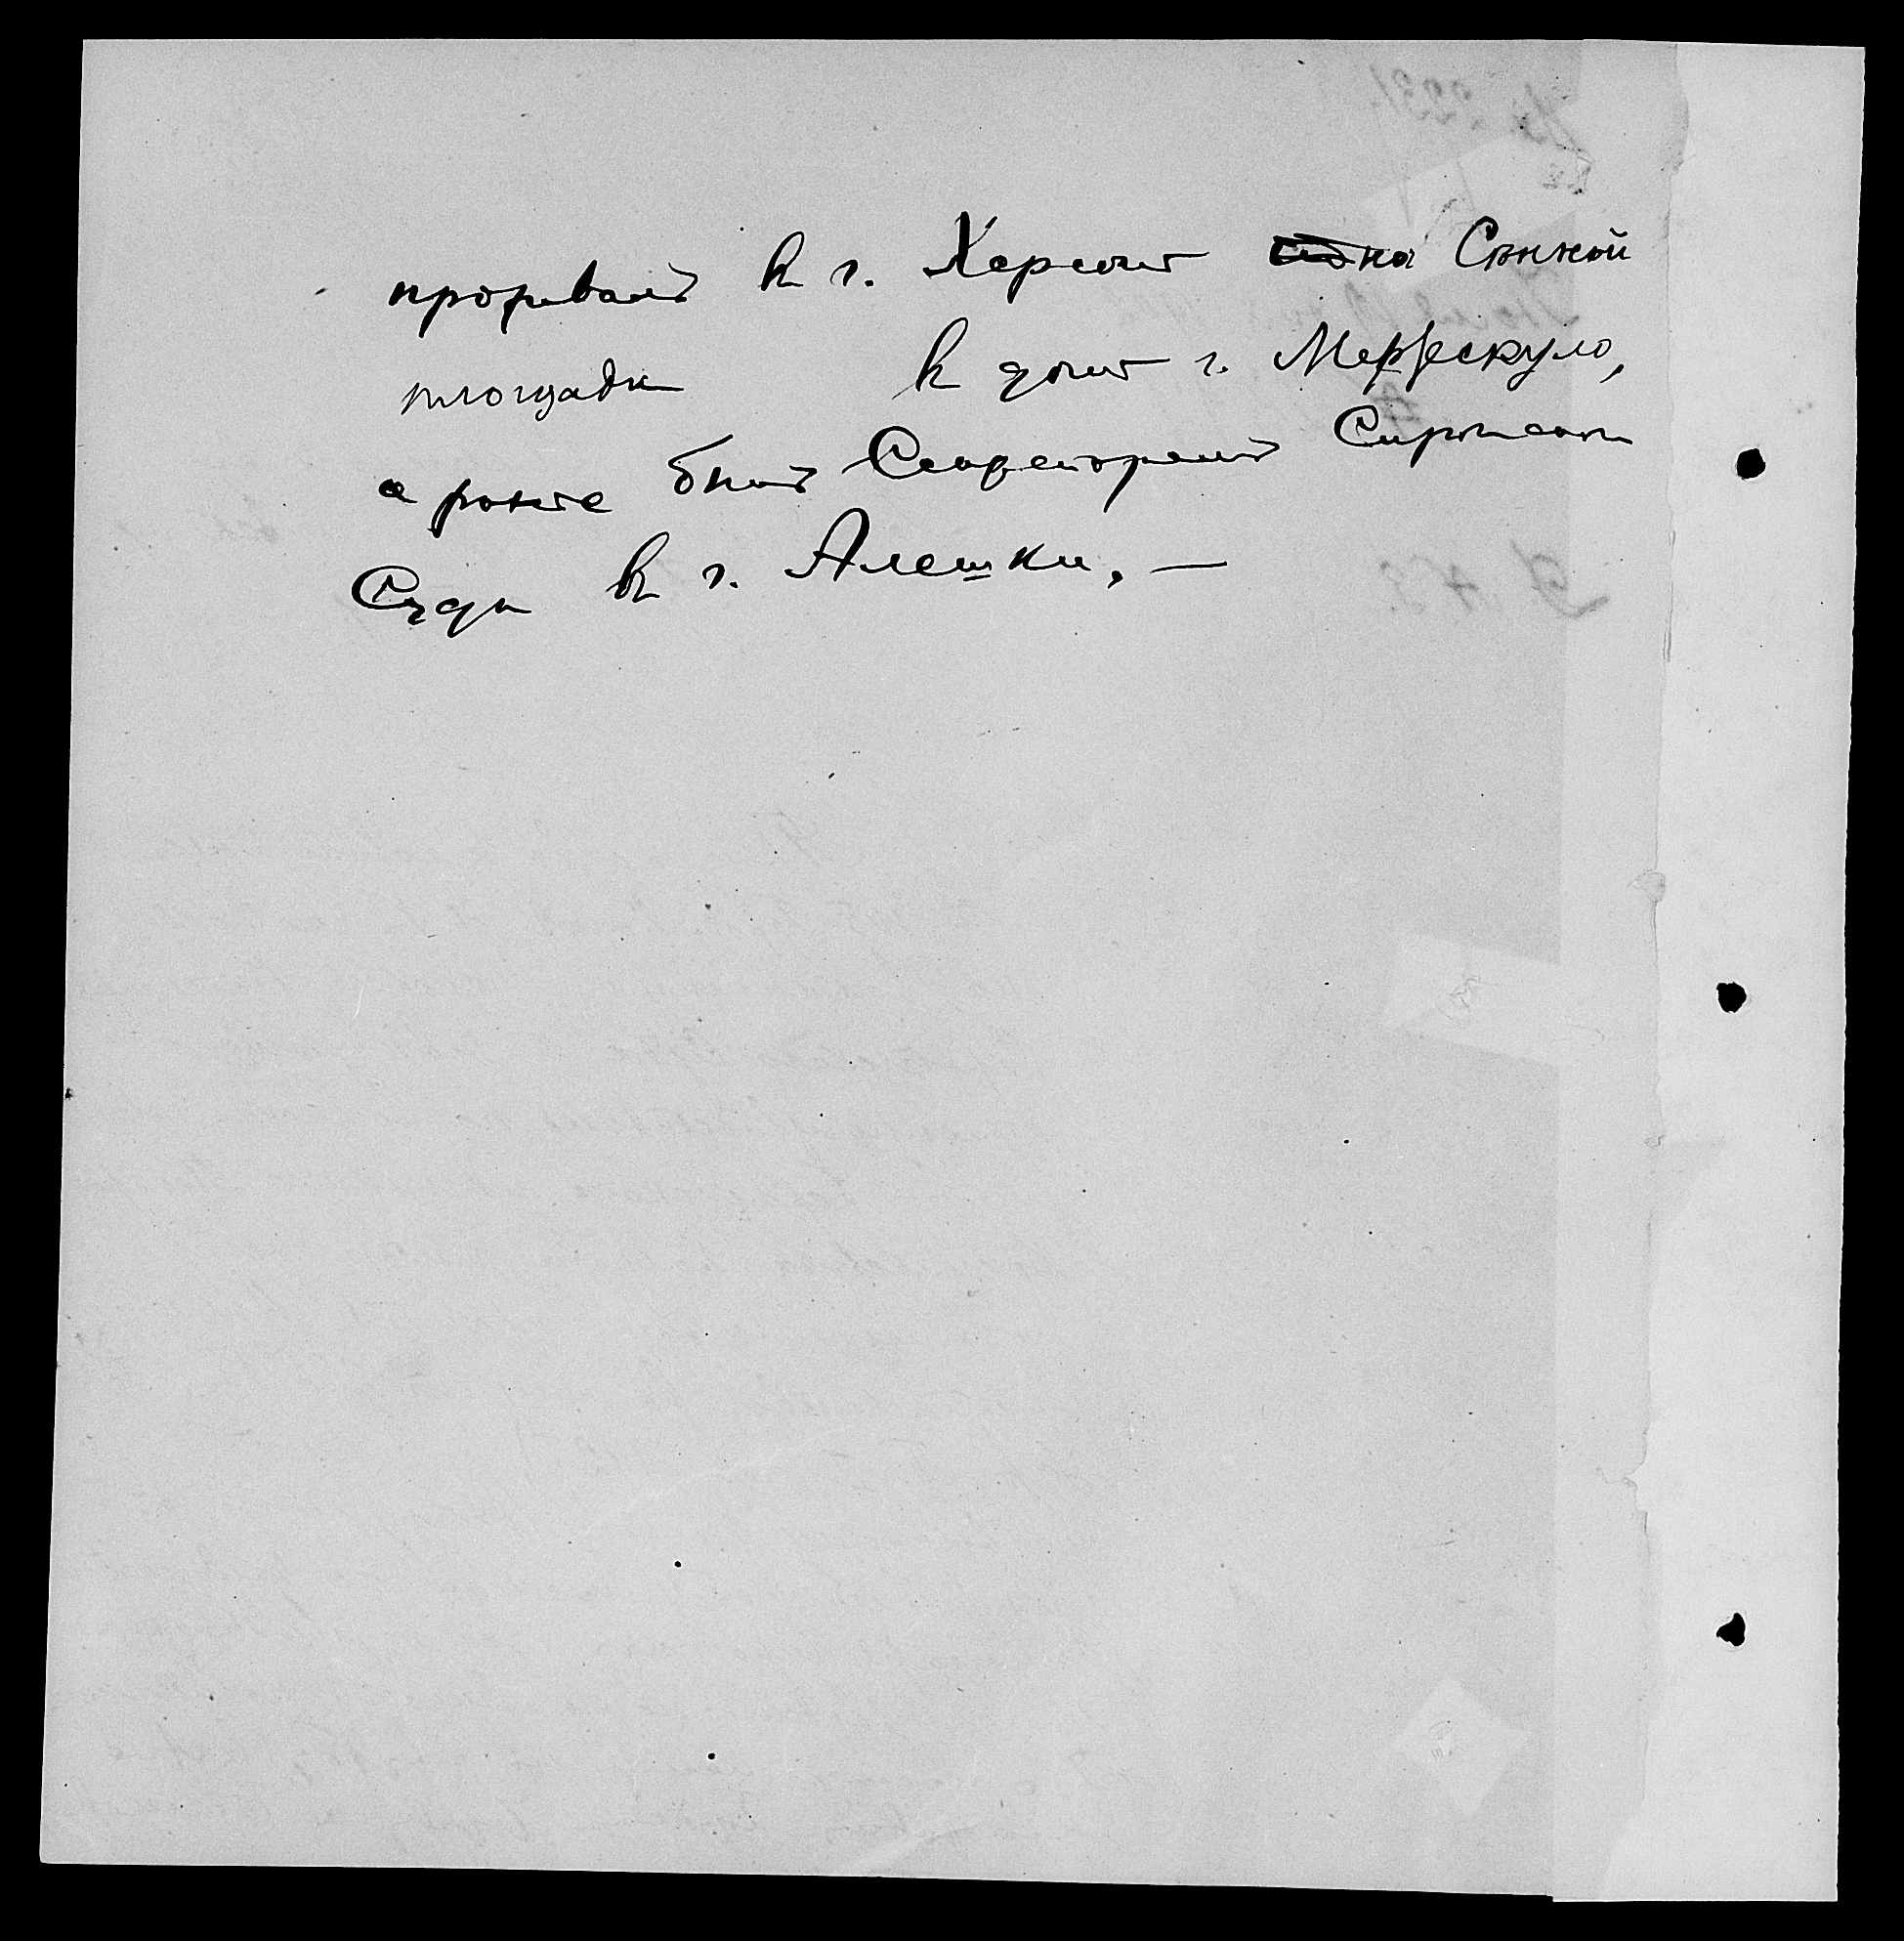 проживалъ въ г. Херсонѣ на Сѣнной
площади въ домѣ г. Мержескуло,
а ранѣе былъ Секретаремъ Сиротскаго
Суда въ г. Алешки. —